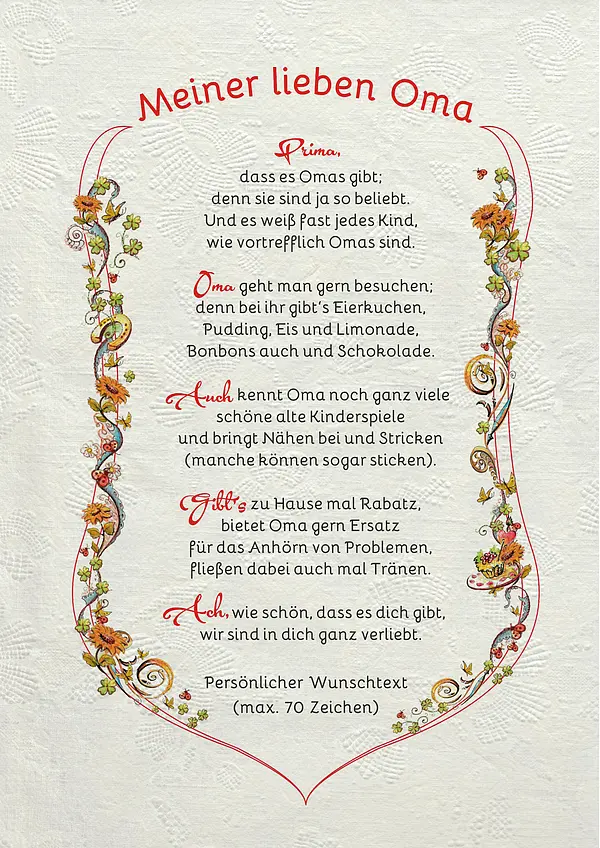 Meiner lieben Oma
Prima,
dass es Omas gibt;
denn sie sind ja so beliebt.
Und es weiß fast jedes Kind,
wie vortrefflich Omas sind.
Oma geht man gern besuchen;
denn bei ihr gibt's Eierkuchen,
Pudding, Eis und Limonade,
Bonbons auch und Schokolade.
Auch kennt Oma noch ganz viele
schöne alte Kinderspiele
und bringt Nähen bei und Stricken
(manche können sogar sticken).
Gibt's zu Hause mal Rabatz,
bietet Oma gern Ersatz
für das Anhörn von Problemen,
fließen dabei auch mal Tränen.
Ach, wie schön, dass es dich gibt,
wir sind in dich ganz verliebt.
Persönlicher Wunschtext
(max. 70 Zeichen)